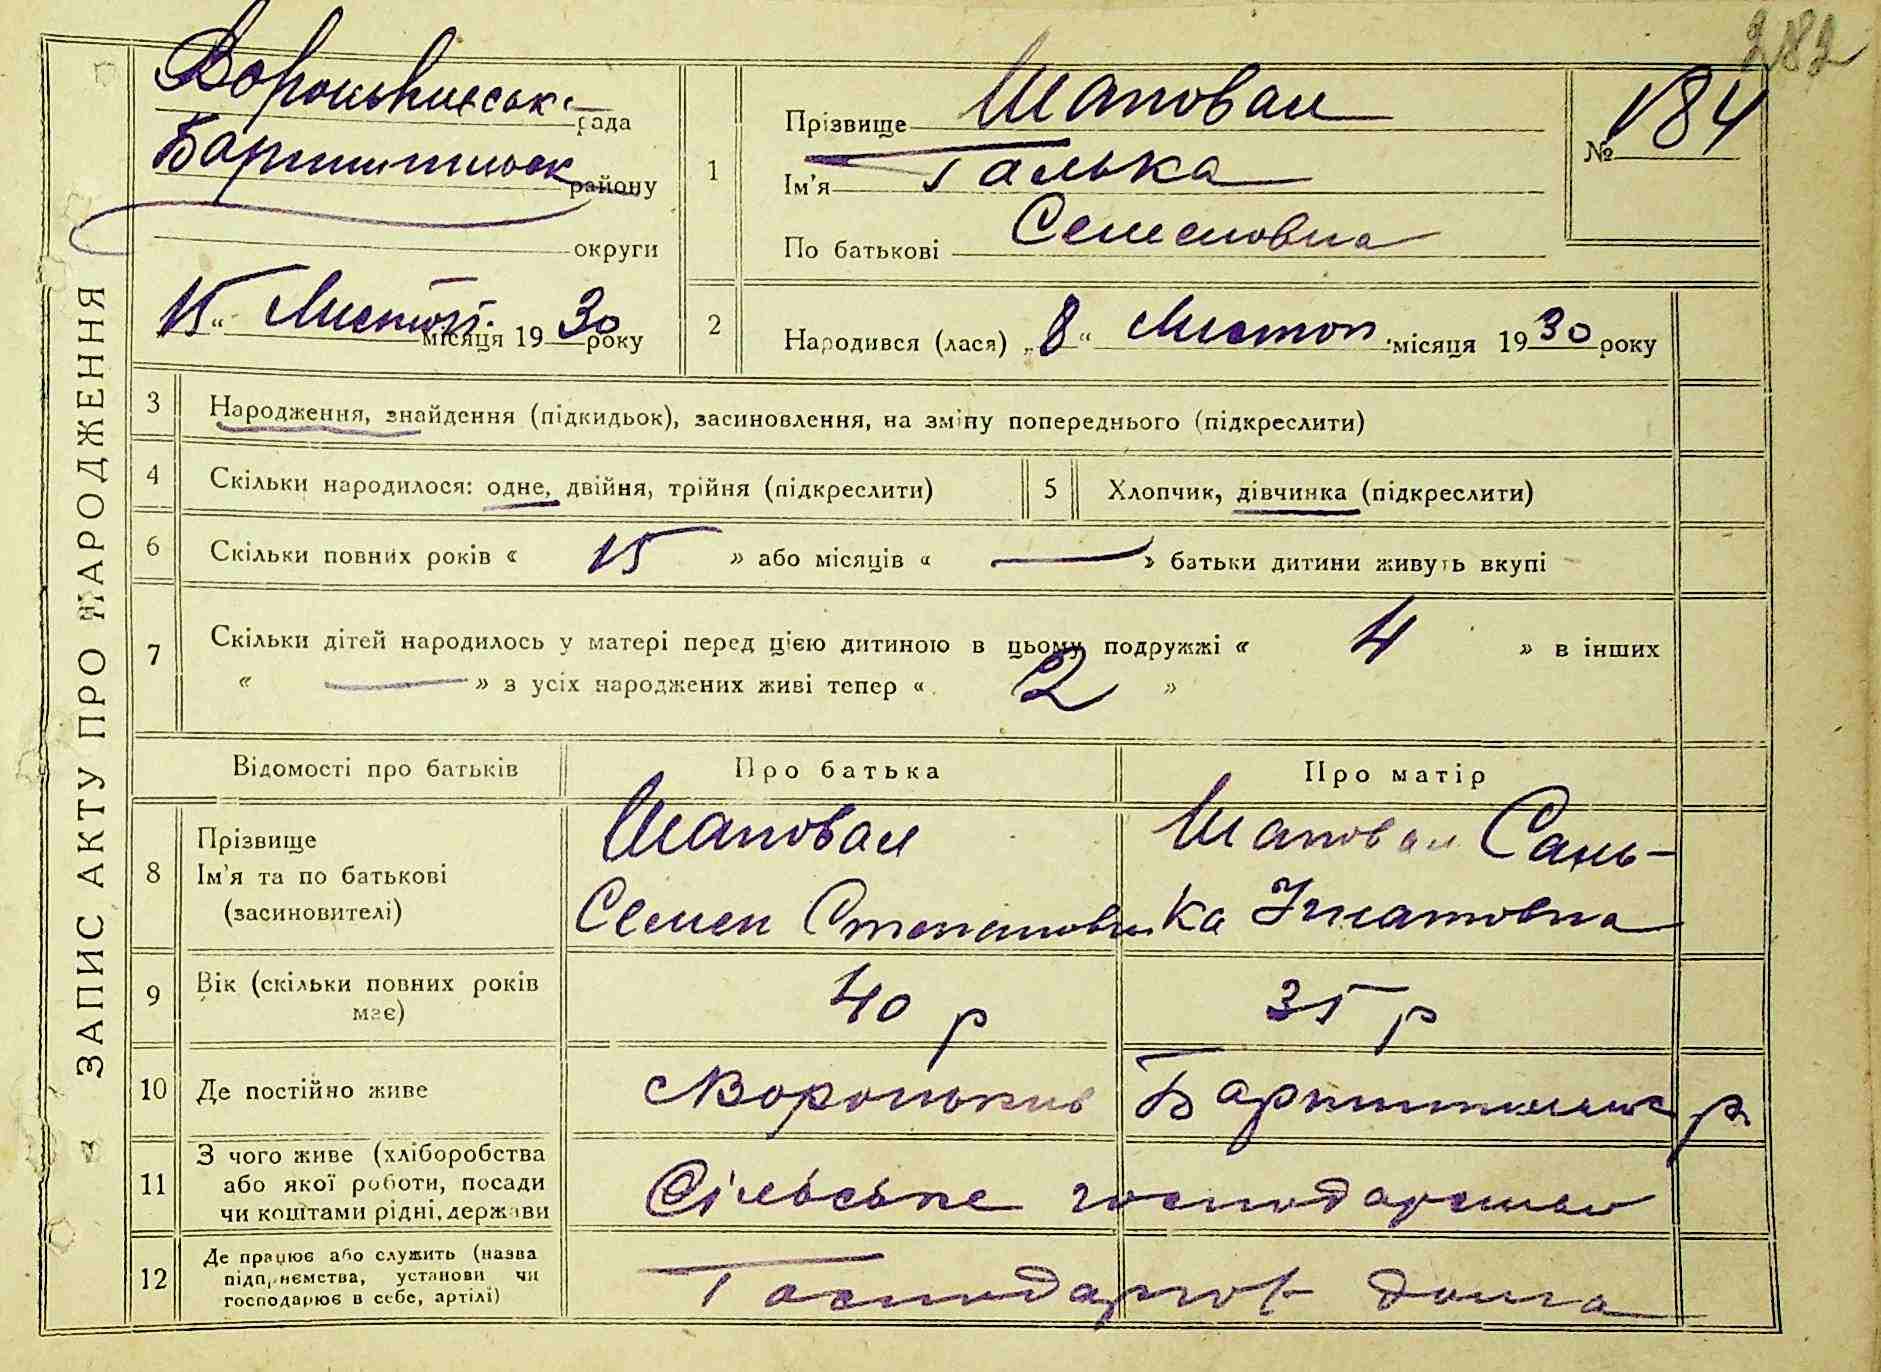 282
ЗАПИС АКТУ ПРО НАРОДЖЕННЯ
Вороньківськ. рада
Баришпільськ району
округи
15 " Листоп. місяця 1930 року
1
Прізвище Шаповал
Ім'я Галька
По батькові Семеновна
№ 184
2 Народився (лася) „ 8 " Листоп. місяця 1930 року
3 Народження, знайдення (підкидьок), засиновлення, на зміну попереднього (підкреслити)
4 Скільки народилося: одне, двійня, трійня (підкреслити)
5 Хлопчик, дівчинка (підкреслити)
6 Скільки повних років « 15 » або місяців « — » батьки дитини живуть вкупі
7 Скільки дітей народилось у матері перед цією дитиною в цьому подружжі « 4 » в інших
« — » з усіх народжених живі тепер « 2 »
Відомості про батьків Про батька Про матір
8 Прізвище
Ім'я та по батькові
(засиновителі)
Шаповал
Семен Степанович
Шаповал Сань-
ка Ігнатовна
9 Вік (скільки повних років
має)
40 р
35 р
10 Де постійно живе
с Вороньків Баришпільськ р.
11 З чого живе (хліборобства
або якої роботи, посади
чи коштами рідні, держави
Сільське господарство
12 Де працює або служить (назва
підприємства, установи чи
господарює в себе, артілі)
Господарює дома